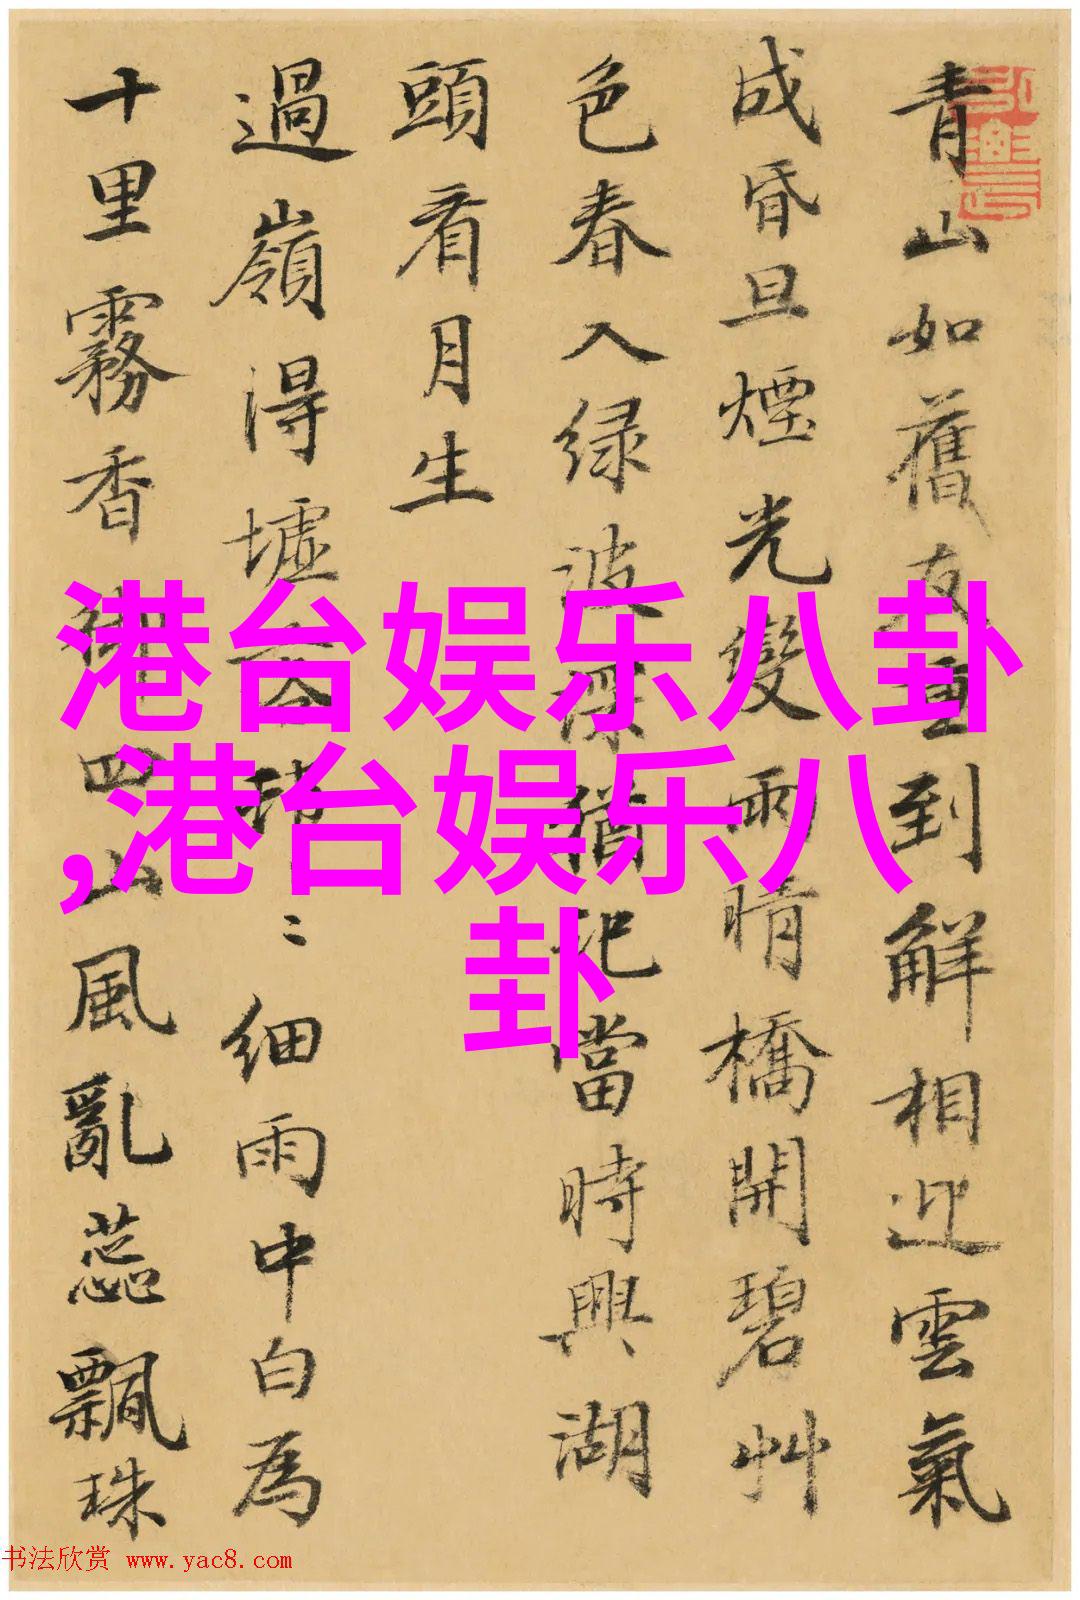 青山如舊友重到解相迎雲氣
成昏旦煙光變雨晴橋開碧艸
色春入绿波深猶記當時興湖
頭看月生
過嶺得墟細雨中白為
十里霧香四山風亂蕊飄珠
港台娱乐八卦
,港台娱乐八
卦
书法欣赏 www.yac8.com